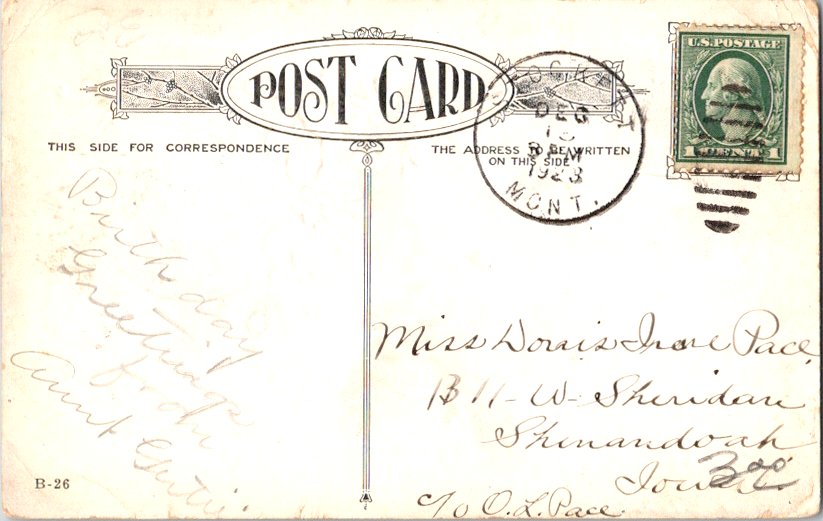 POST CARD
THIS SIDE FOR CORRESPONDENCE
THE ADDRESS TO BE WRITTEN
ON THIS SIDE
DEC
8 PM
1923
MONT.
U.S. POSTAGE
1 CENT 1
Birthday
Greetings
from
Aunt Gertie
Miss Dorris Irene Pace
B 11 - W - Sheridan
Shenandoah
Iowa
3.00
c/o O. L. Pace
B-26